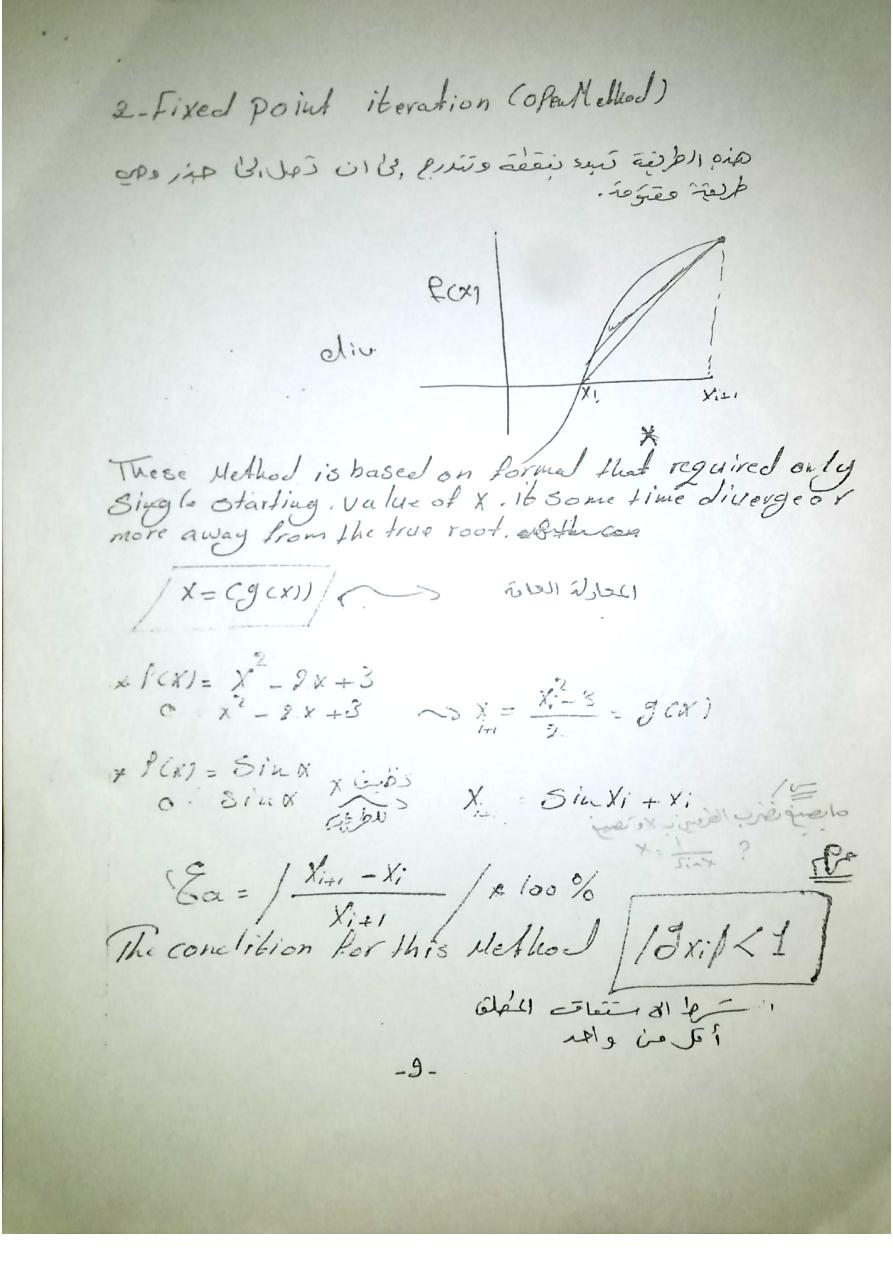 2-Fixed point iteration (open Method)
هذه الطريقة تبدء بنقطة وتتدرج إلى ان تصل إلى جذر وهي
طريقة مفتوحة.
f(x)
div
xi
xi+1
*
These Method is based on formal that required only
Single starting. value of x. it some time diverge or
more away from the true root.
x=(g(x)) المعادلة العامة
* f(x)= x² - 2x+3
0 x² - 2x+3 → x i+1 = (xi² - 3)/2 = g(x)
* f(x) = Sinx
0 = Sinx نضيف x للطرفين x Sin xi + xi
ما يصير نضرب الطرفين بـ x وتصير
x = 1/sinx ?
Ɛa = | (xi+1 - xi)/xi+1 | * 100 %
The condition for this Method |gxi| < 1
شرط الاشتقاق المطلق
أقل من واحد
-9-